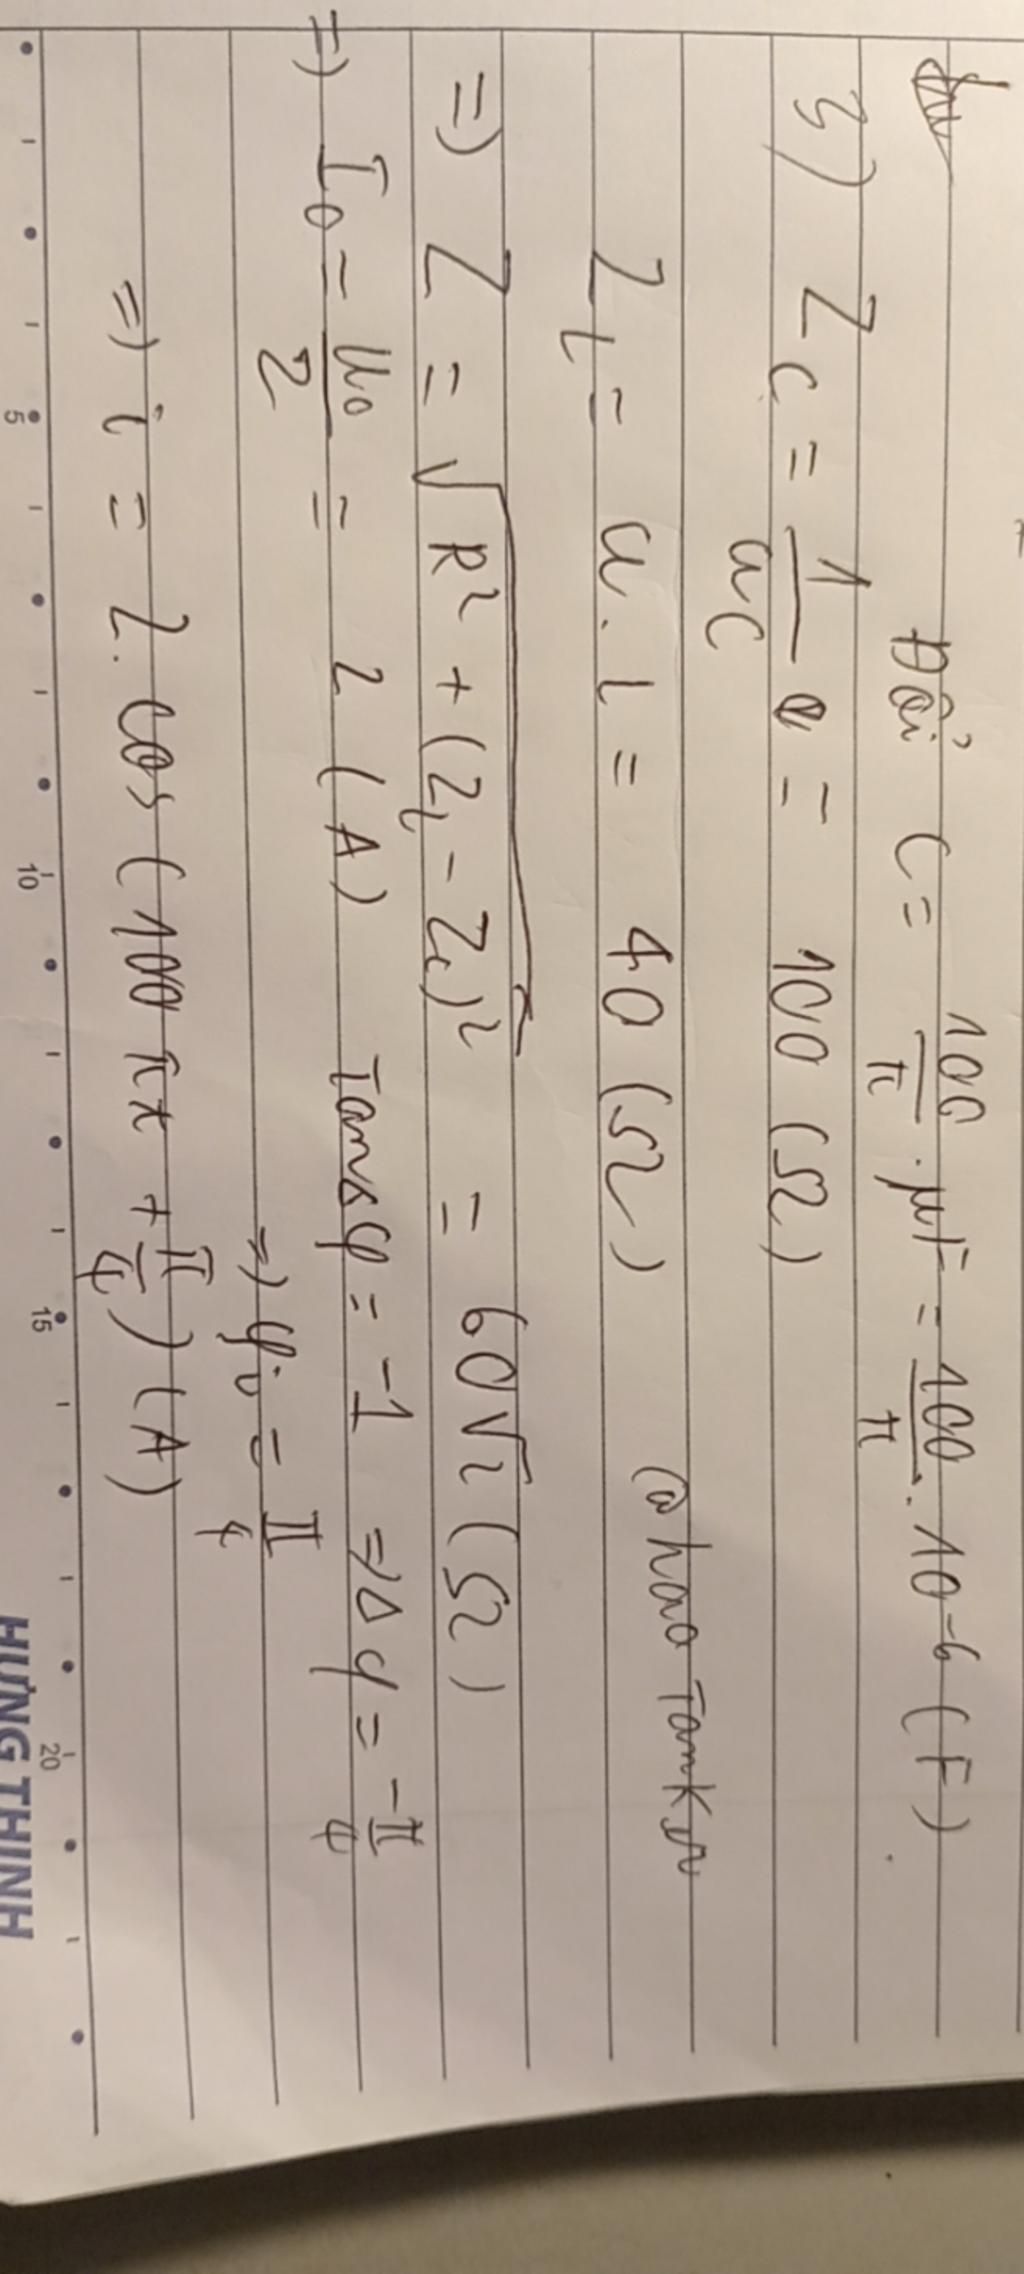 Đổi C = 100/π . μF = 100/π . 10^-6 (F)
3) Z_C = 1/ωC = 100 (Ω)
Z_L = ω . L = 40 (Ω)
@haotankon
=) Z = √(R² + (Z_L - Z_C)²) = 60√2 (Ω)
=) I_0 = U_0/Z = 2 (A) Tanφ = -1 => Δφ = -π/4
=) φi = π/4
=) i = 2. cos (100πt + π/4) (A)
5 10 15 20
HƯNG THỊNH